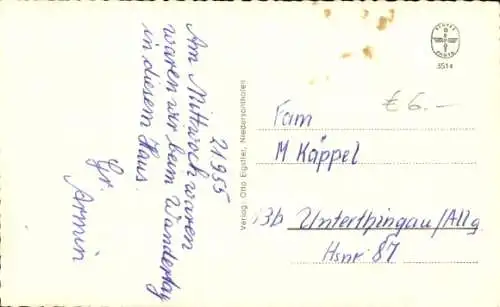 21955
Am Mittwoch waren
waren wir beim Wandertag
in diesem Haus.
Gr. Armin
Verlag: Otto Eigstler, Niedersonthofen
3514
€ 6.-
Fam
M Käppel
13b Unterthingau/Allg
Hsnr 87